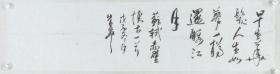 早生華
髮人生如
夢一樽
還酹江
月
蘇軾赤壁
懷古一首